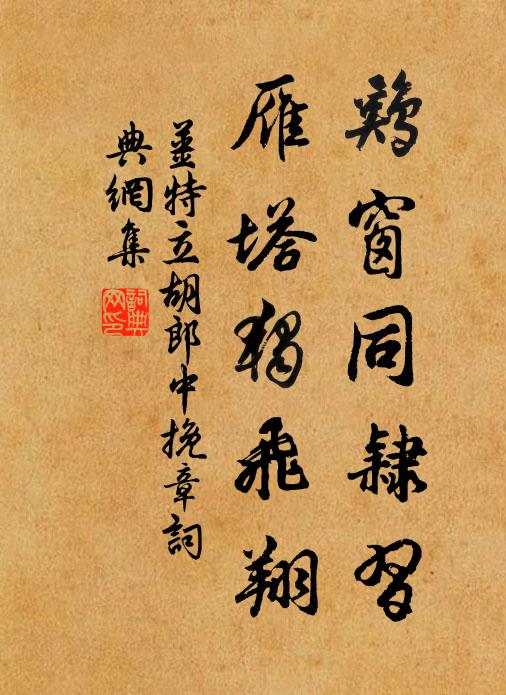 鷄窗同隸習
雁塔獨飛翔
姜特立胡郎中挽章詞
典網集
詞典網印